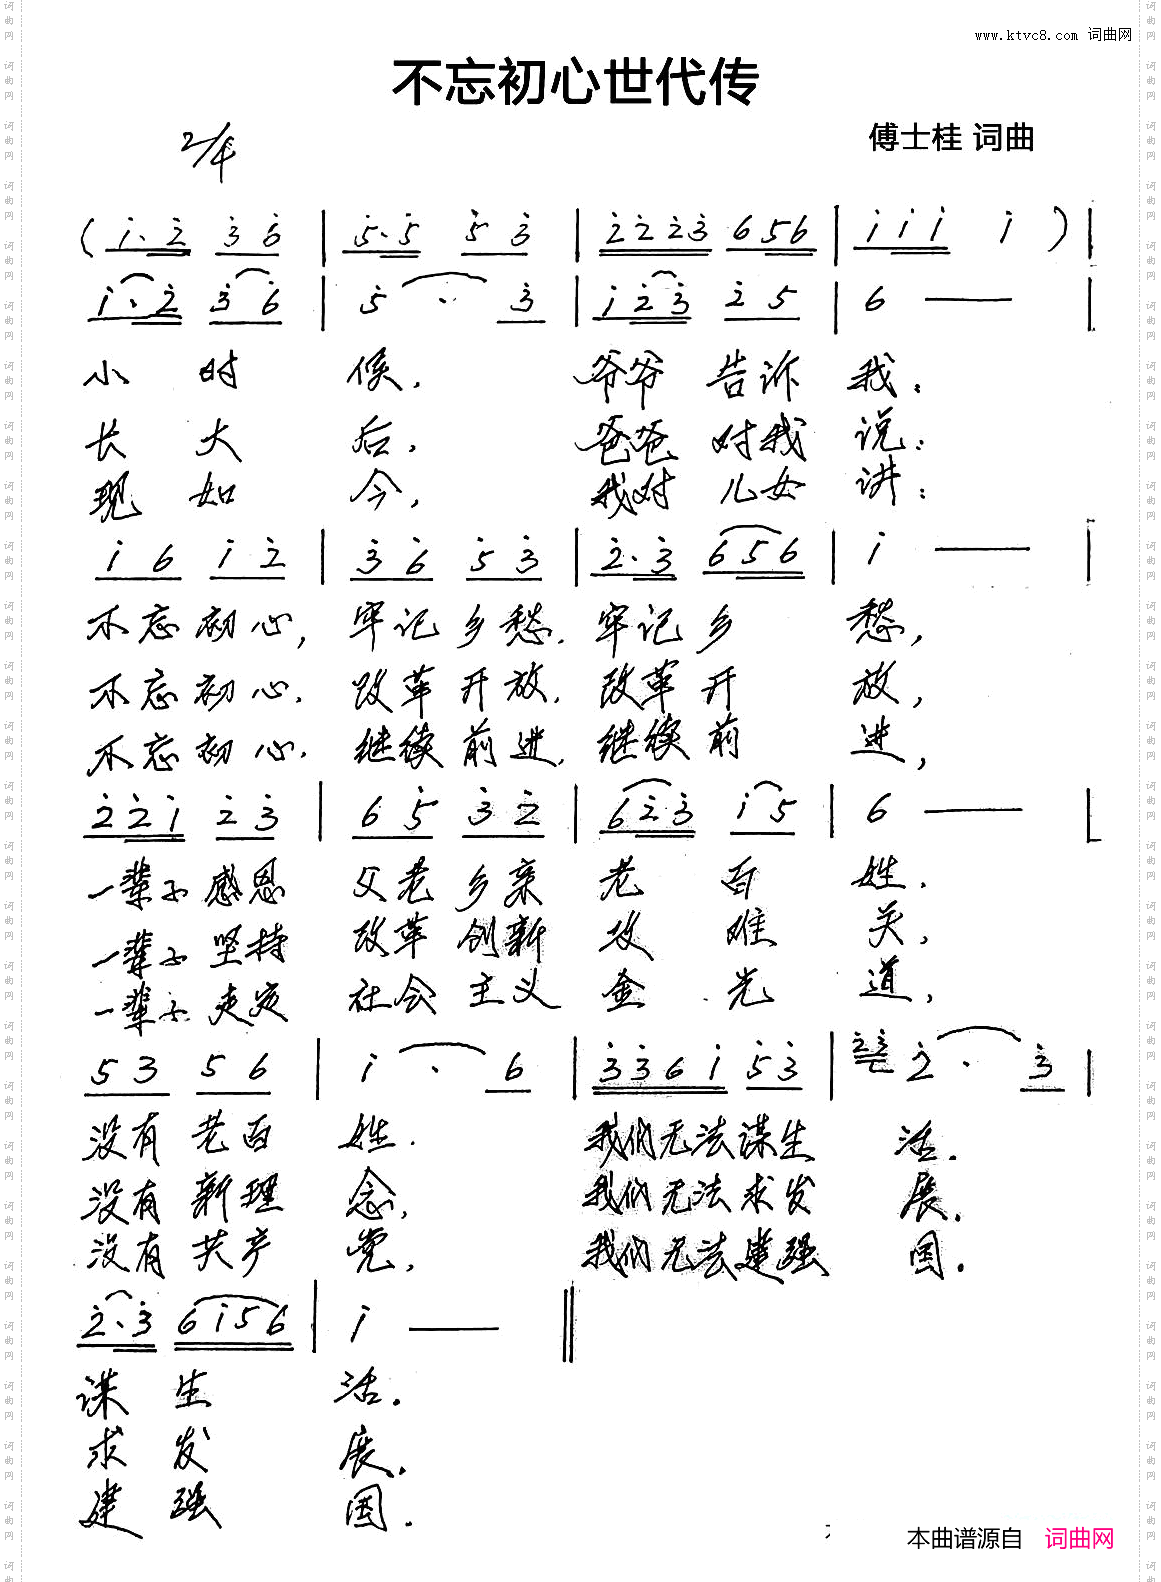 www.ktvc8.com 词曲网
不忘初心世代传
2/4
傅士桂 词曲
( i· 2 3 6 | 5· 5 5 3 | 2 2 2 3 6 5 6 | i i i i ) |
i· 2 3 6 | 5 · 3 | i 2 3 2 5 | 6 — |
小 时 候, 爷爷 告诉 我:
长 大 后, 爸爸 对我 说:
现 如 今, 我对 儿女 讲:
i 6 i 2 | 3 6 5 3 | 2· 3 6 5 6 | i — |
不忘初心, 牢记乡愁, 牢记乡 愁,
不忘初心, 改革开放, 改革开 放,
不忘初心, 继续前进, 继续前 进,
2 2 i 2 3 | 6 5 3 2 | 6 2 3 i 5 | 6 — |
一辈子感恩 父老乡亲 老 百 姓.
一辈子坚持 改革创新 攻 难 关,
一辈子走定 社会主义 金 光 道,
5 3 5 6 | i · 6 | 3 3 6 i 5 3 | 2 3 2 · 3 |
没有老百 姓. 我们无法谋生 活.
没有新理 念, 我们无法求发 展.
没有共产 党, 我们无法建强 国.
2· 3 6 i 5 6 | i — ||
谋 生 活.
求 发 展.
建 强 国.
本曲谱源自 词曲网